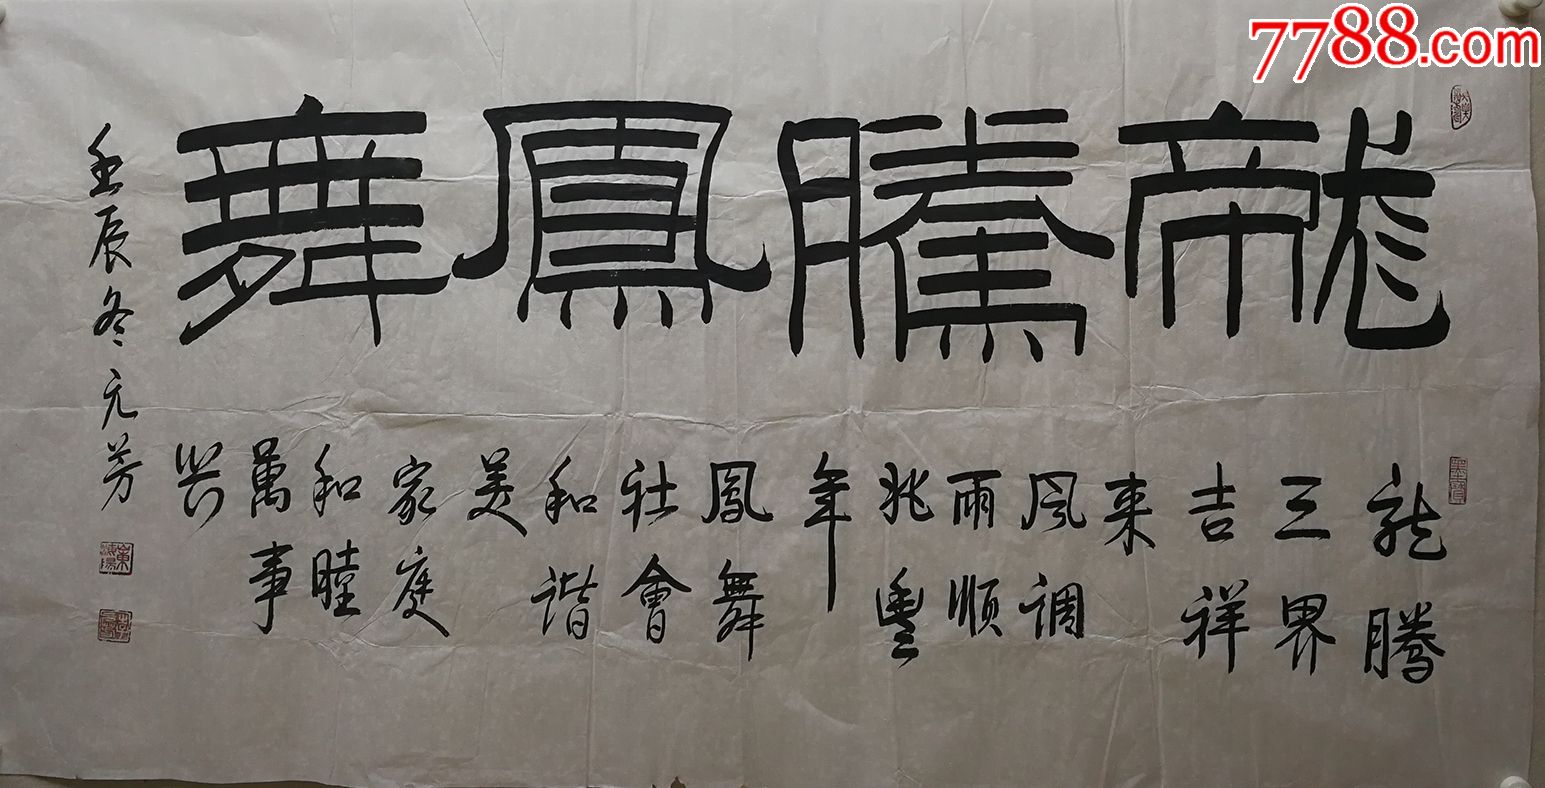 7788.com
龍騰鳳舞
龙腾
三界
吉祥
来
风调
雨顺
兆豐
年
鳳舞
社會
和谐
美
家庭
和睦
萬事
兴
壬辰冬元芳